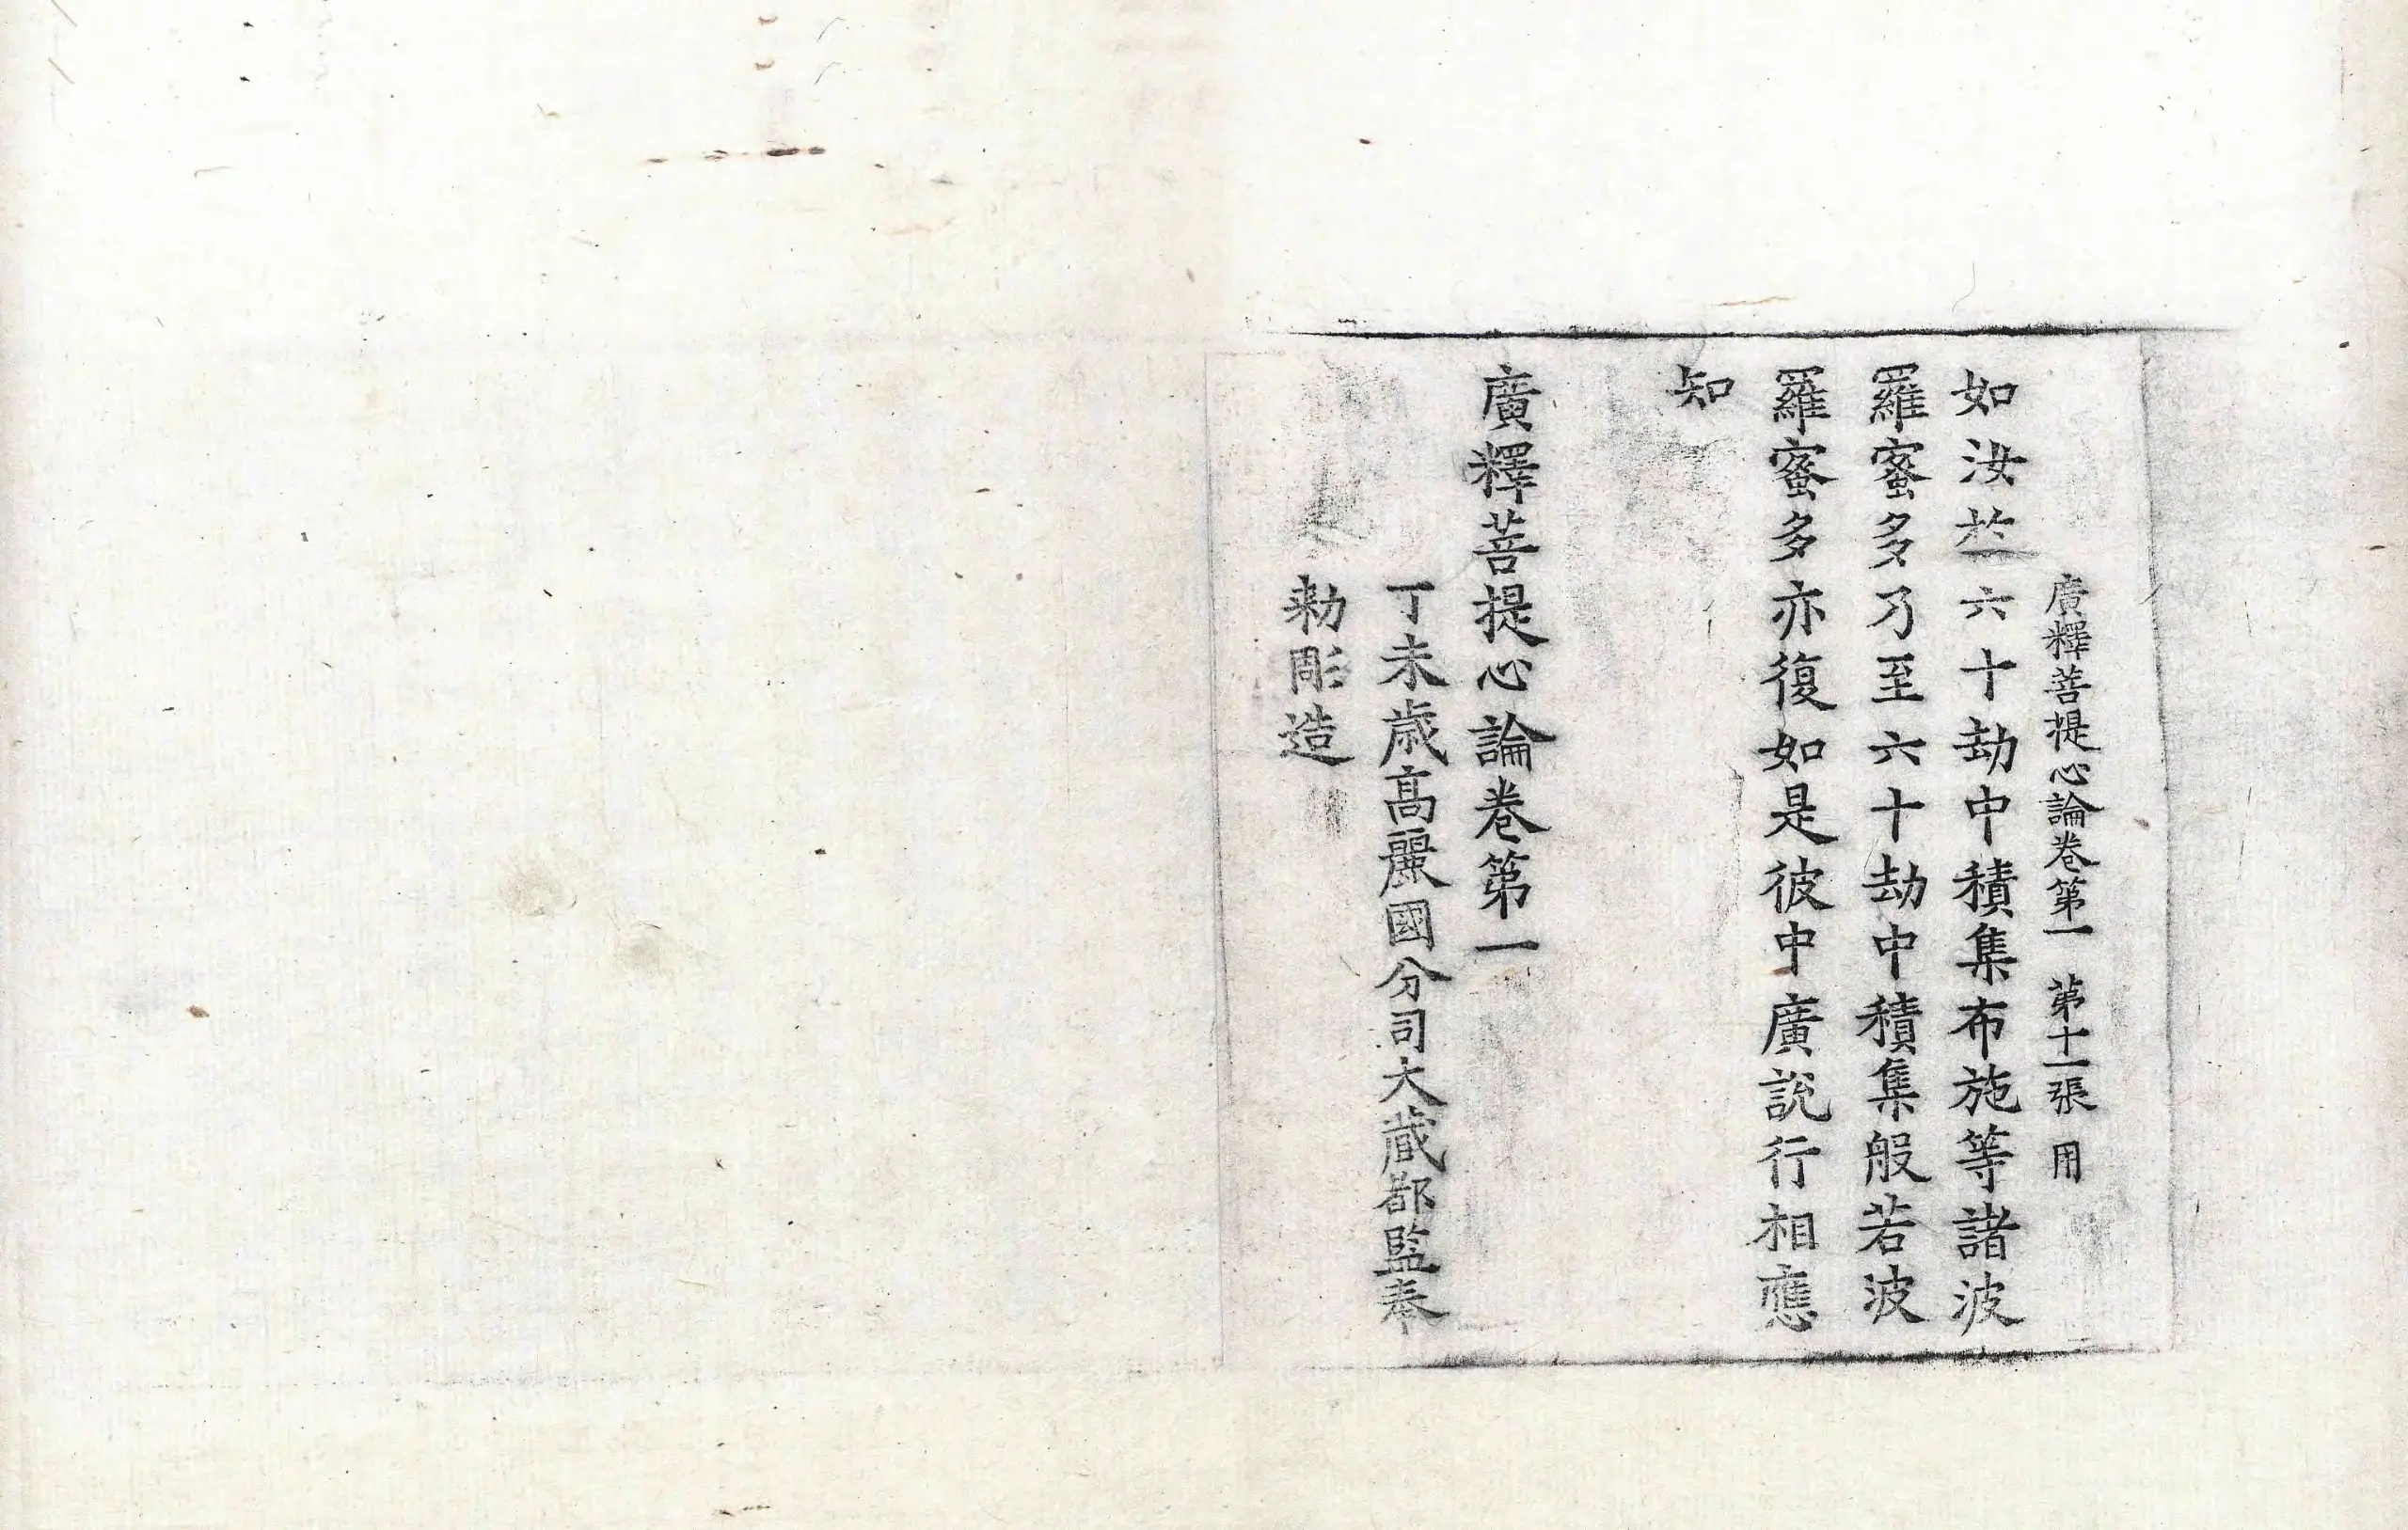 廣釋菩提心論卷第一 第十一張 用
如汝於六十劫中積集布施等諸波
羅蜜多乃至六十劫中積集般若波
羅蜜多亦復如是彼中廣說行相應
知
廣釋菩提心論卷第一
丁未歲高麗國分司大藏都監奉
勅彫造